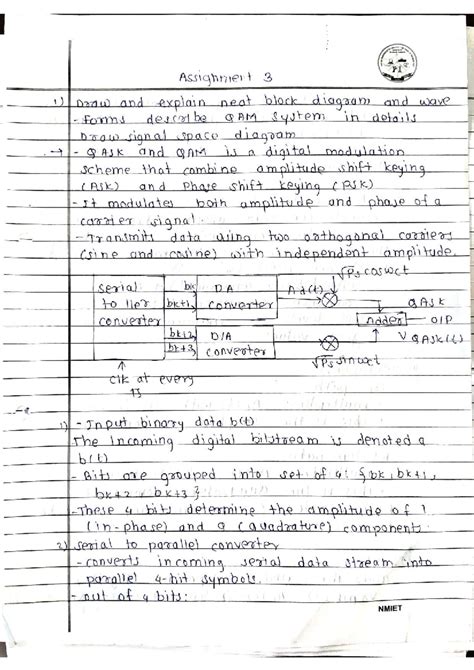 Assignment 3
1) Draw and explain neat block diagram and wave
- forms describe QAM system in details
Draw signal space diagram
→ - QASK and QAM is a digital modulation
scheme that combine amplitude shift keying
(ASK) and Phase shift keying (PSK)
- It modulates both amplitude and phase of a
carrier signal.
- Transmits data using two orthogonal carriers
(sine and cosine) with independent amplitude.
√Ps coswct
Serial
to ller
converter
bk
bk+1
DA
converter
Ad(t)
QASK
Adder
O/P
VQASK(t)
bk+2
bk+3
D/A
converter
√Ps sinwct
Clk at every
1) - Input binary data b(t)
The incoming digital bitstream is denoted a
b(t)
- Bits are grouped into set of 4: {bk, bk+1,
bk+2, bk+3}
- These 4 bits determine the amplitude of I
(in-phase) and Q (Quadrature) components.
2) Serial to parallel converter
- converts incoming serial data stream into
parallel 4-bit symbols.
- out of 4 bits:
NMIET